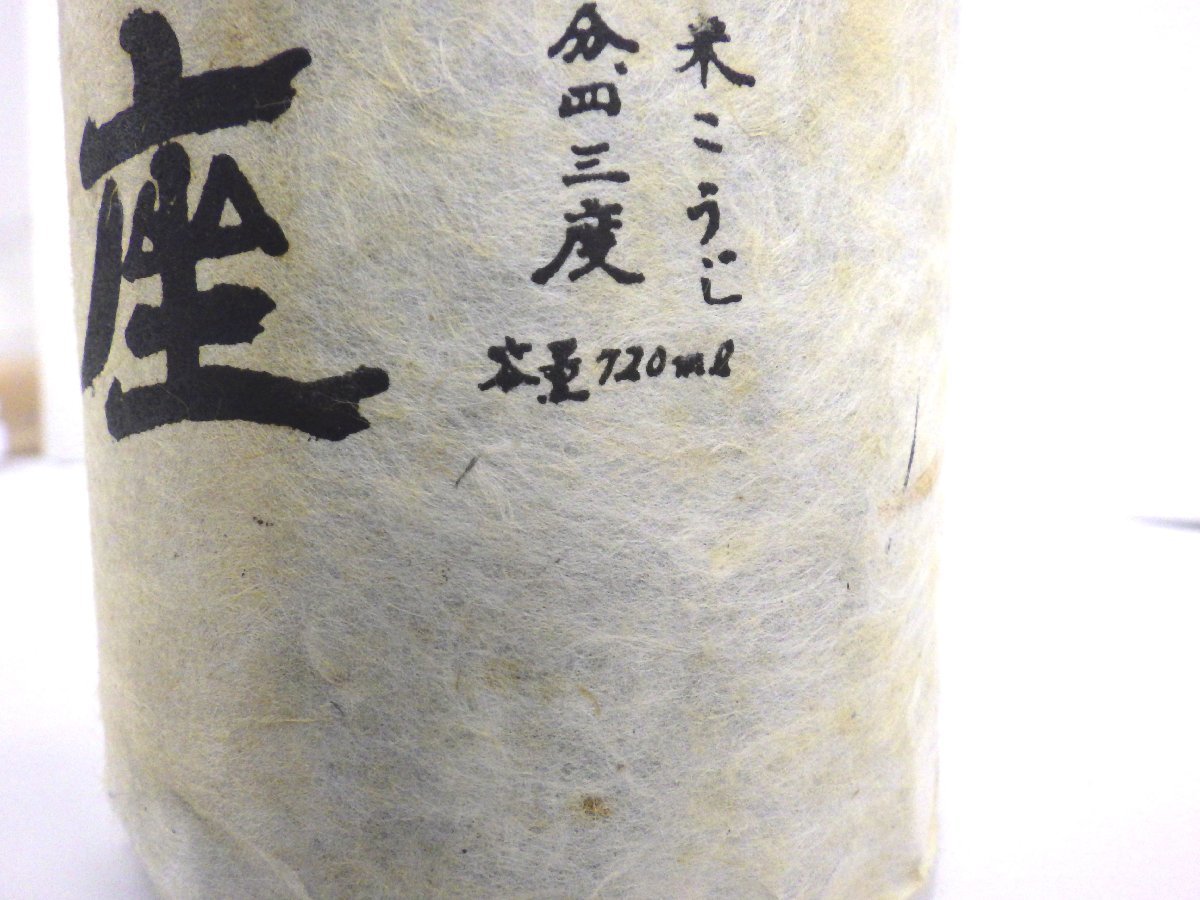 米こうじ
分、四三度
容量720ml
座